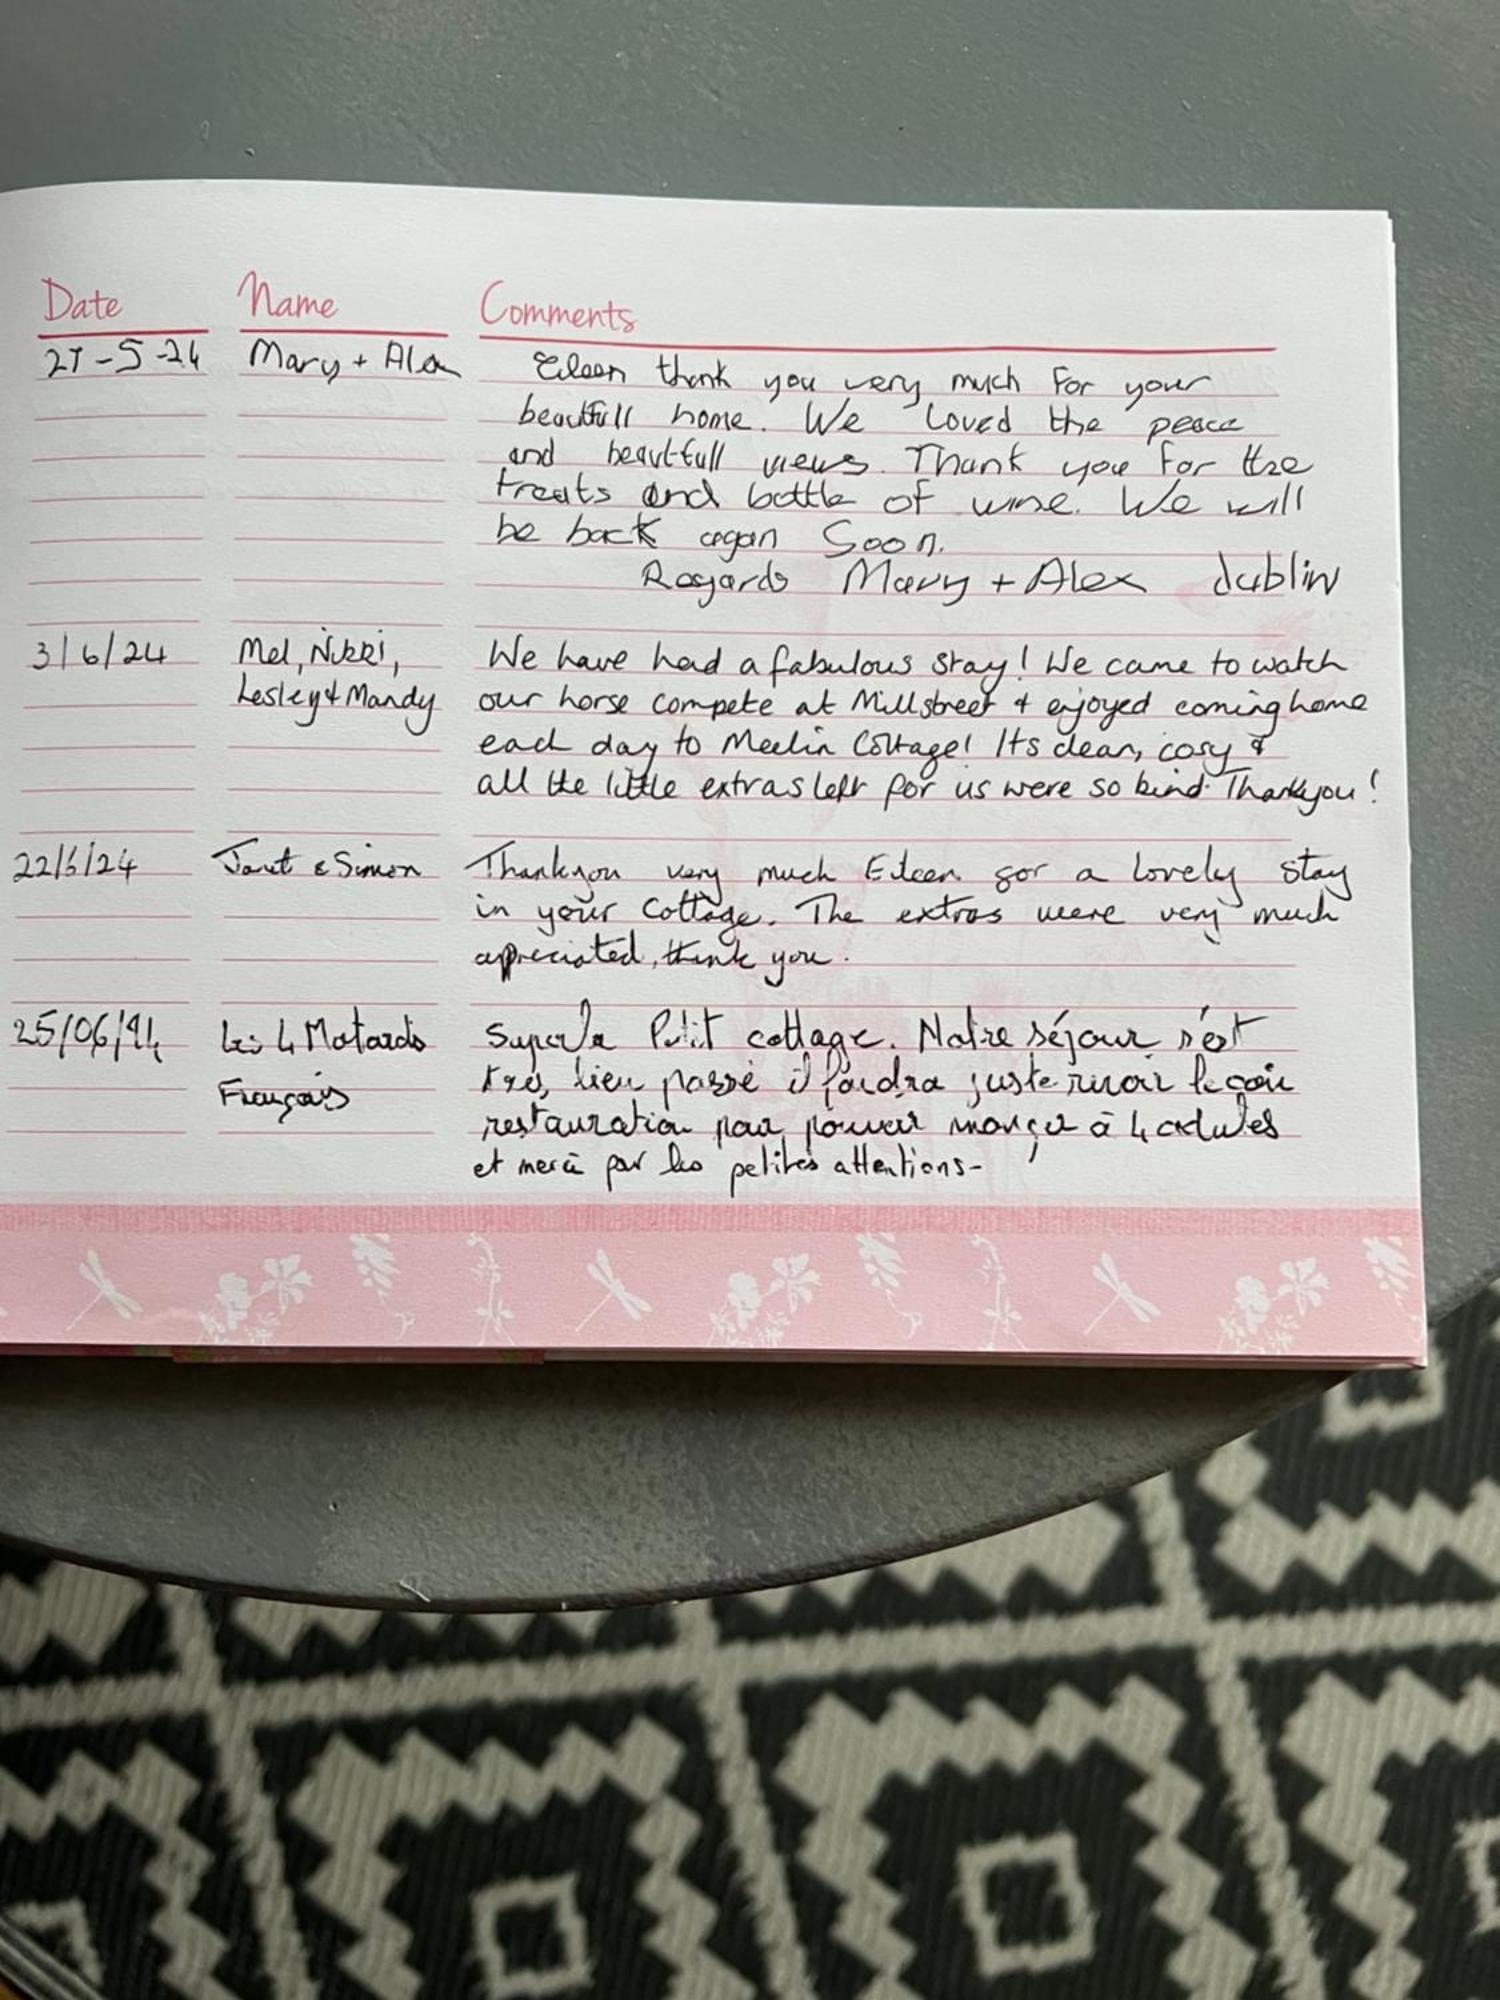 Date Name Comments
27-5-24 Mary + Alex Eileen thank you very much for your
beautfull home. We Loved the peace
and beautfull views. Thank you for the
treats and bottle of wine. We will
be back again Soon.
Regards Mary + Alex dublin
3/6/24 Mel, Nikki, We have had a fabulous stay! We came to watch
Lesley & Mandy our horse compete at Millstreet & enjoyed coming home
each day to Meelin Cottage! Its clean, cosy &
all the little extras left for us were so kind. Thankyou!
22/6/24 Janet & Simon Thankyou very much Eileen for a lovely stay
in your cottage. The extras were very much
appreciated, thank you.
25/06/ Les 4 Motards Superbe Petit cottage. Notre séjour s'est
Français très bien passé il faudra juste revoir le coin
restauration pour pouvoir manger à 4 adultes
et merci par les petites attentions-